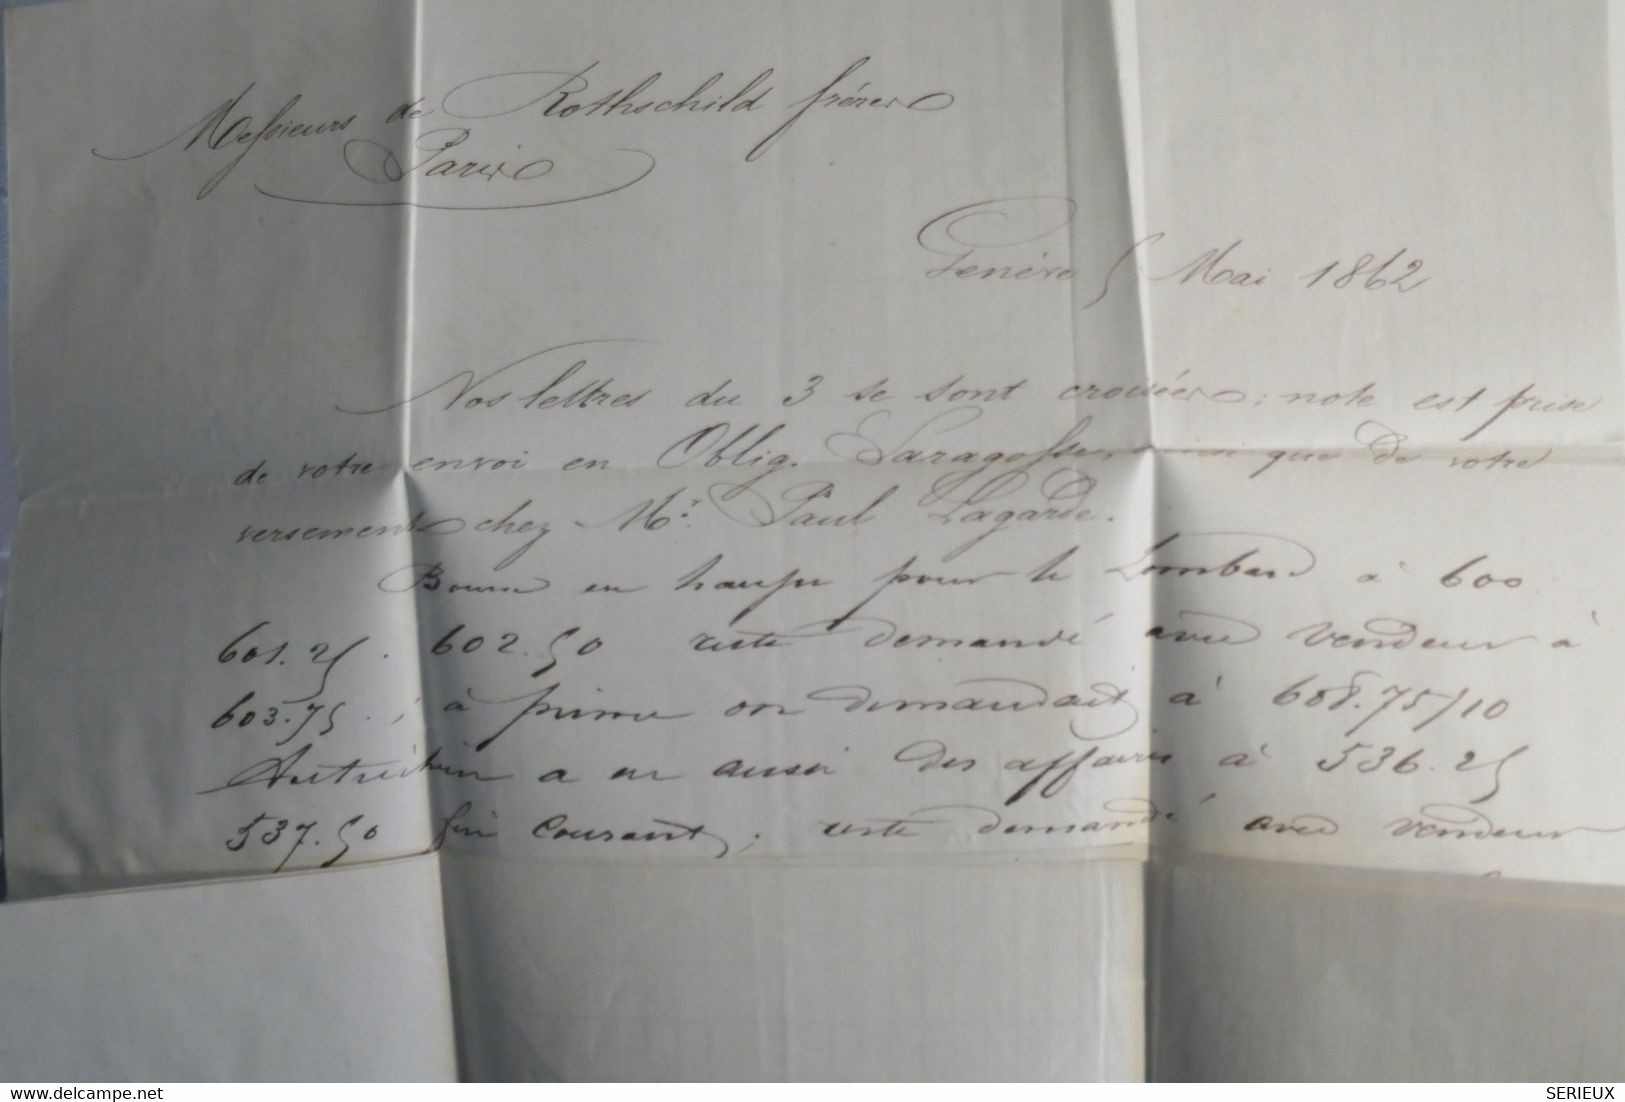 Messieurs de Rothschild frères
Paris
Genève 5 Mai 1862
Nos lettres du 3 se sont croisées; note est prise
de votre envoi en Oblig. Saragosse, ainsi que de votre
versement chez Mr. Paul Lagarde.
Bourse en hausse pour le Lombard à 600
601.25. 602.50 reste demandé avec vendeur à
603.75.; à prime on demandait à 608.75/10
Autrichien a eu aussi des affaires à 536.25
537.50 fin courant; reste demandé avec vendeur
delcampe.net
SERIEUX